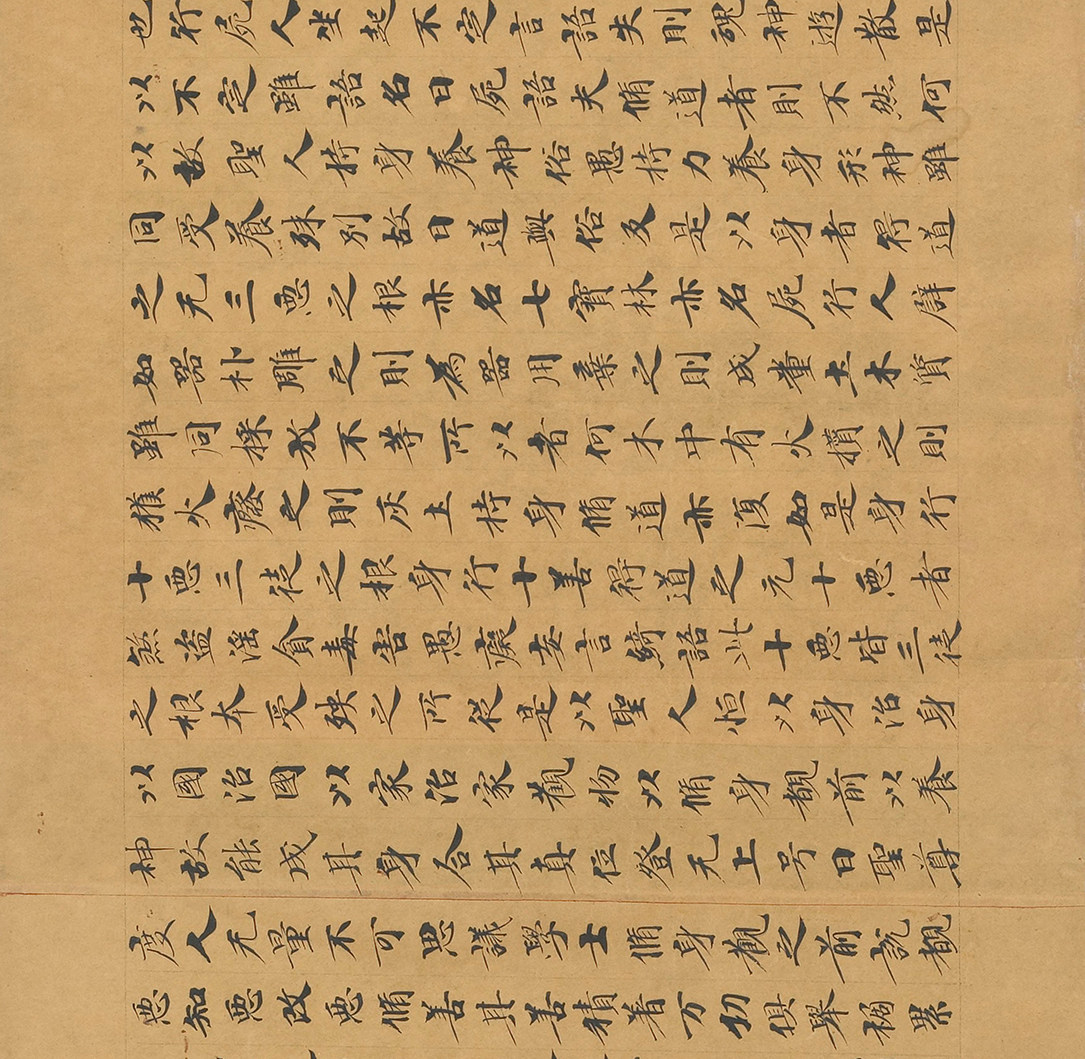 也行屍人坐起不定言語失則魂神遊散是
以不定雖語名曰屍語夫脩道者則不然何
以故聖人持身養神俗愚持力養身形神雖
同受養殊別故曰道與俗反是以身者得道
之元三惡之根亦名七寶林亦名屍行人辟
如器朴雕之則為器用棄之則成糞土木質
雖同採教不等所以者何木中有火攢之則
獲火癈之則灰土持身脩道亦復如是身行
十惡三徒之根身行十善得道之元十惡者
煞盜淫貪毒害愚癡妄言綺語此十惡皆三徒
之根本受殃之所從是以聖人恒以身治身
以國治國以家治家觀物以脩身觀前以養
神故能成其身合其真位登无上号曰聖尊
度人无量不可思議學士脩身觀之前說觀
惡知惡改惡脩善其善積著万物俱舉禍累